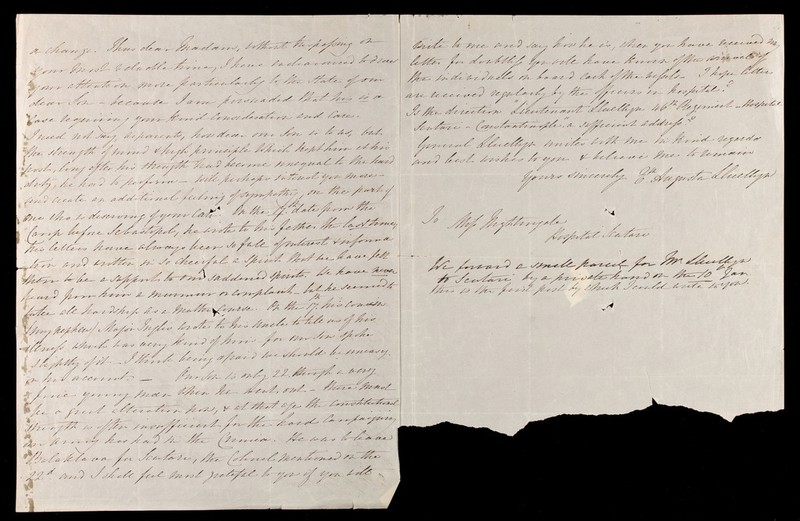 a change. Thus dear Madam, without trespassing on
your most valuable time, I have endeavoured to draw
your attention more particularly to the state of our
dear Son - because I am persuaded that his is a
case requiring your kind consideration and care.
I need not say, as parents, how dear our Son is to us, but
the strength of mind & high principle which kept him at his
post, long after his strength had become unequal to the hard
duty, he had to perform - will perhaps interest you more -
and create an additional feeling of sympathy on the part of
one who is deserving of your care. On the 7th date from the
Camp before Sebastopol, he wrote to his father the last time,
his letters have always been so full of interest & informa
tion and written in so cheerful a spirit that we have felt
them to be a support to our saddened spirits. We have never
heard from him a murmur or complaint but he seemed to
take all hardship as a matter of course. On the 17th his cousin
(my nephew) Major Inglis wrote to his Uncle to tell us of his
illness which was very kind of him for our Son spoke
slightly of it - I think being afraid we should be uneasy
on his account. - Our Son is only 22 though a very
fine young man when he went out - there must
be a great alteration now, & at that age the constitutional
strength is often insufficient for the hard Campaigning
our army has had in the Crimea. He was to leave
Balaklava for Scutari, the Colonel mentioned on the
22d and I shall feel most grateful to you if you will
write to me and say how he is, when you have received my
letter for doubtless you will have known of the arrivals of
the individuals on board each of the ships. I hope letters
are received regularly by the officers in hospital?
Is the direction "Lieutenant Lluellyn 46th Regiment - Hospital
Scutari - Constantinople" a sufficient address?
General Lluellyn unites with me in kind regards
and best wishes to you & believe me to remain
Yours sincerely Eth Augusta Lluellyn
To Miss Nightingale
Hospital Scutari
We forward a small parcel for Mr Lluellyn
to Scutari by a private hand on the 10th Jan
this is the first post by which I could write to you